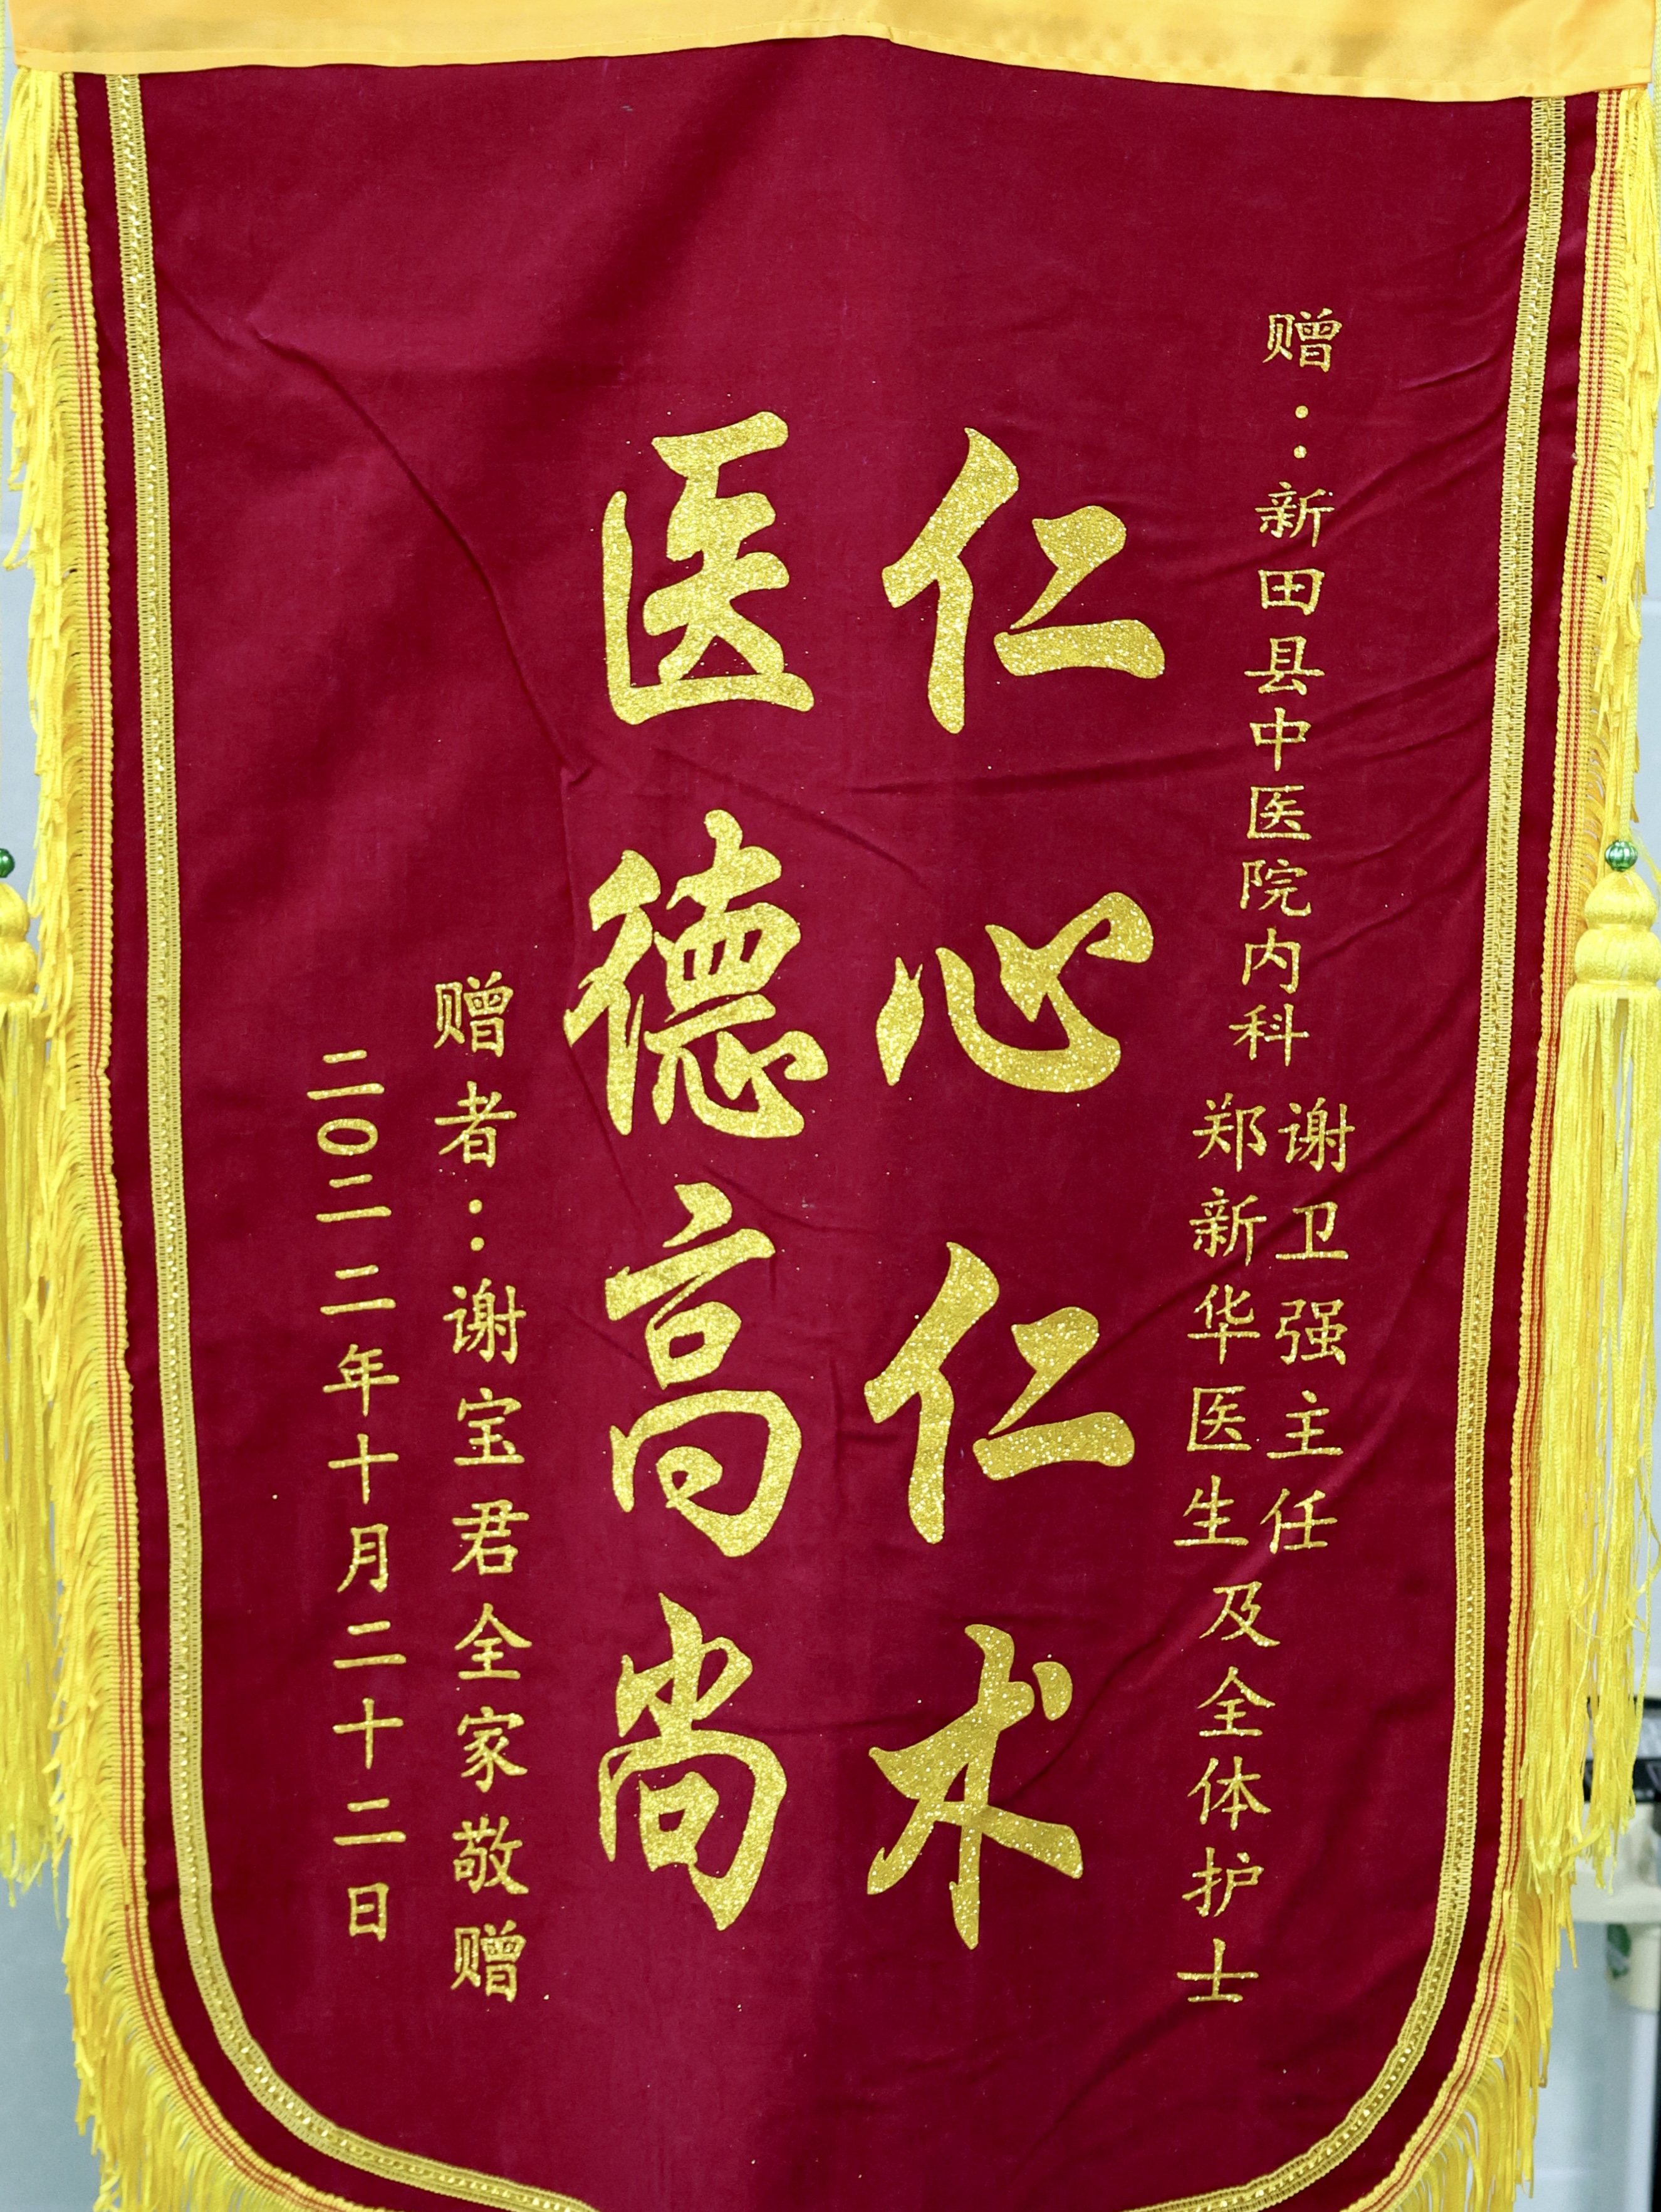 赠：新田县中医院内科
谢卫强主任
郑新华医生
及全体护士
仁心仁术
医德高尚
赠者：谢宝君全家敬赠
二〇二二年十月二十二日